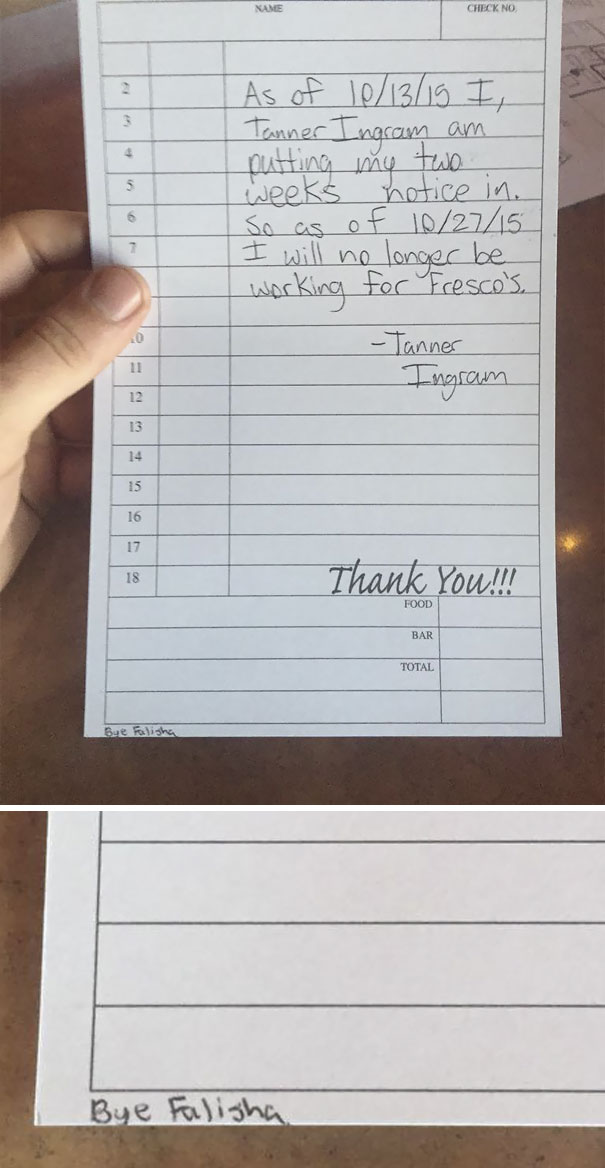 NAME CHECK NO.
2 As of 10/13/15 I,
3 Tanner Ingram am
4 putting my two
5 weeks notice in.
6 So as of 10/27/15
7 I will no longer be
working for Fresco's.
10 -Tanner
11 Ingram
12
13
14
15
16
17
18 Thank You!!!
FOOD
BAR
TOTAL
Bye Falisha
Bye Falisha